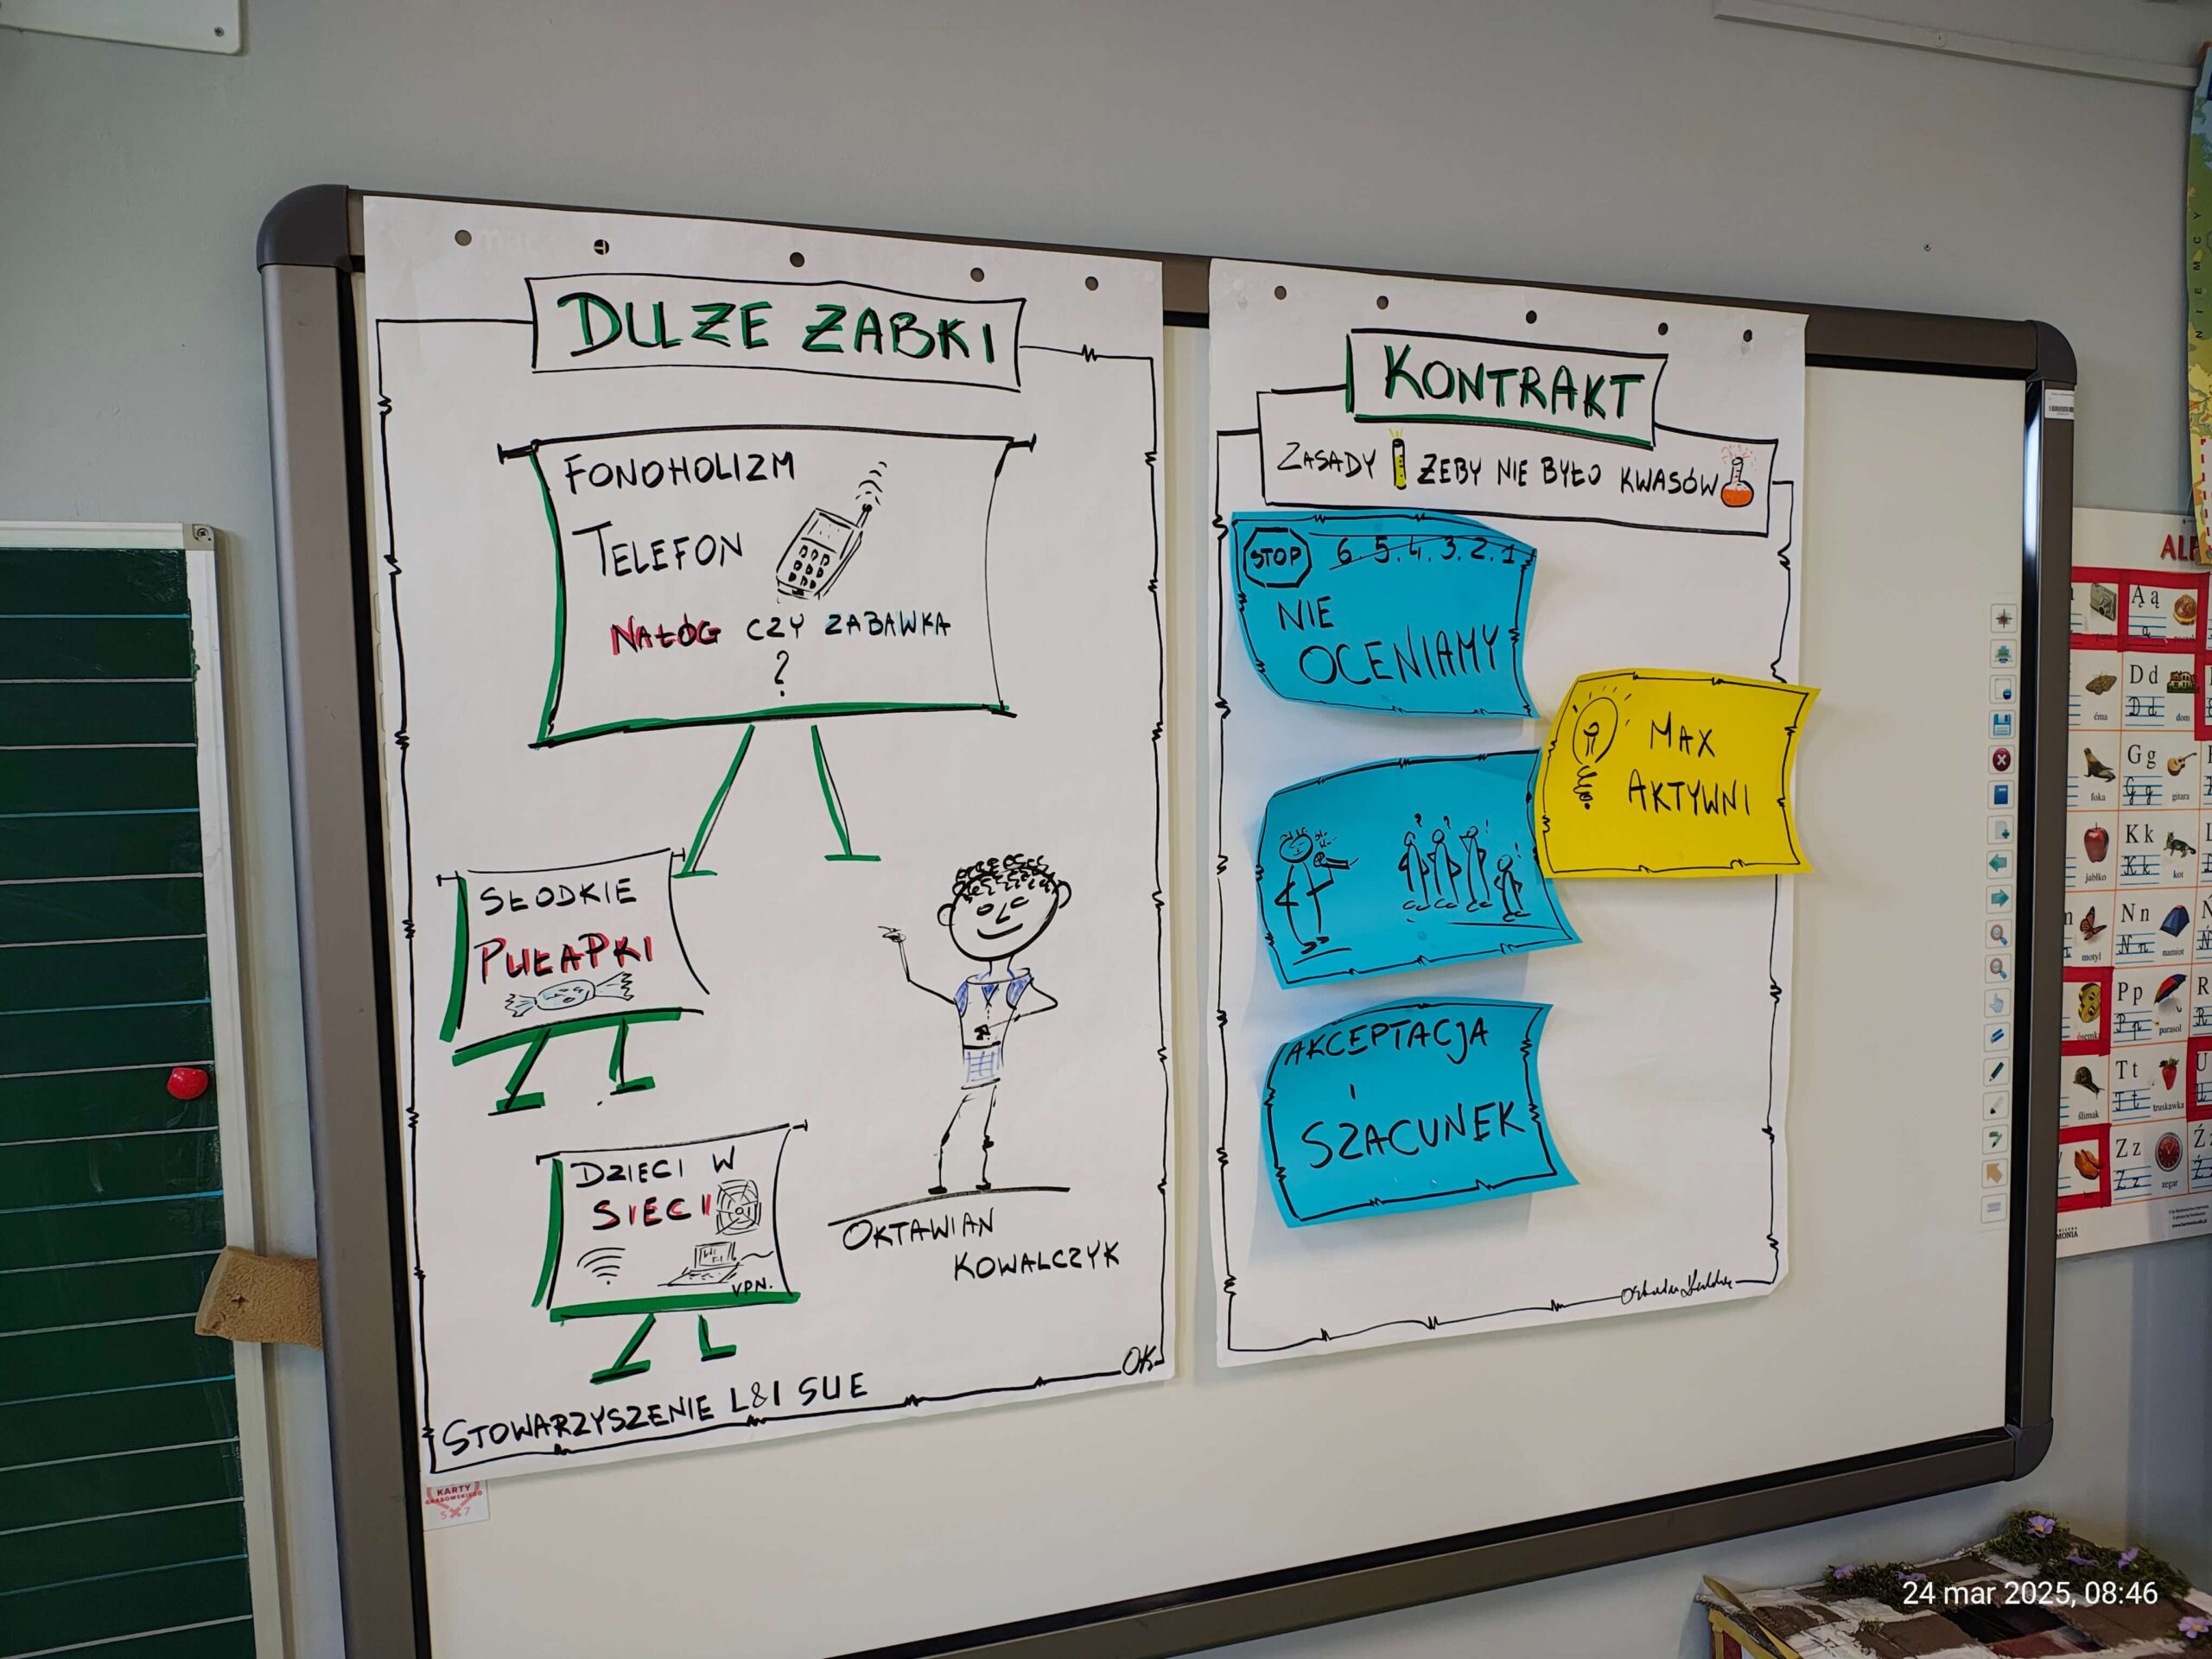 DUZE ZABKI
FONOHOLIZM
TELEFON
NAŁÓG CZY ZABAWKA
?
SŁODKIE
PUŁAPKI
DZIECI W
SIECI
VPN.
OKTAWIAN
KOWALCZYK
OK
STOWARZYSZENIE L&I SUE
KARTY
GRABOWSKIEGO
KONTRAKT
ZASADY ZEBY NIE BYŁO KWASÓW
STOP 6.5.4.3.2.1
NIE
OCENIAMY
MAX
AKTYWNI
AKCEPTACJA
I
SZACUNEK
NIEMCY
ALF
Ą ą
D d
ćma
dom
G g
foka
gitara
K k
jabłko
kot
N n
motyl
namiot
P p
parasol
R
T t
ślimak
truskawka
U
Z z
zegar
24 mar 2025, 08:46